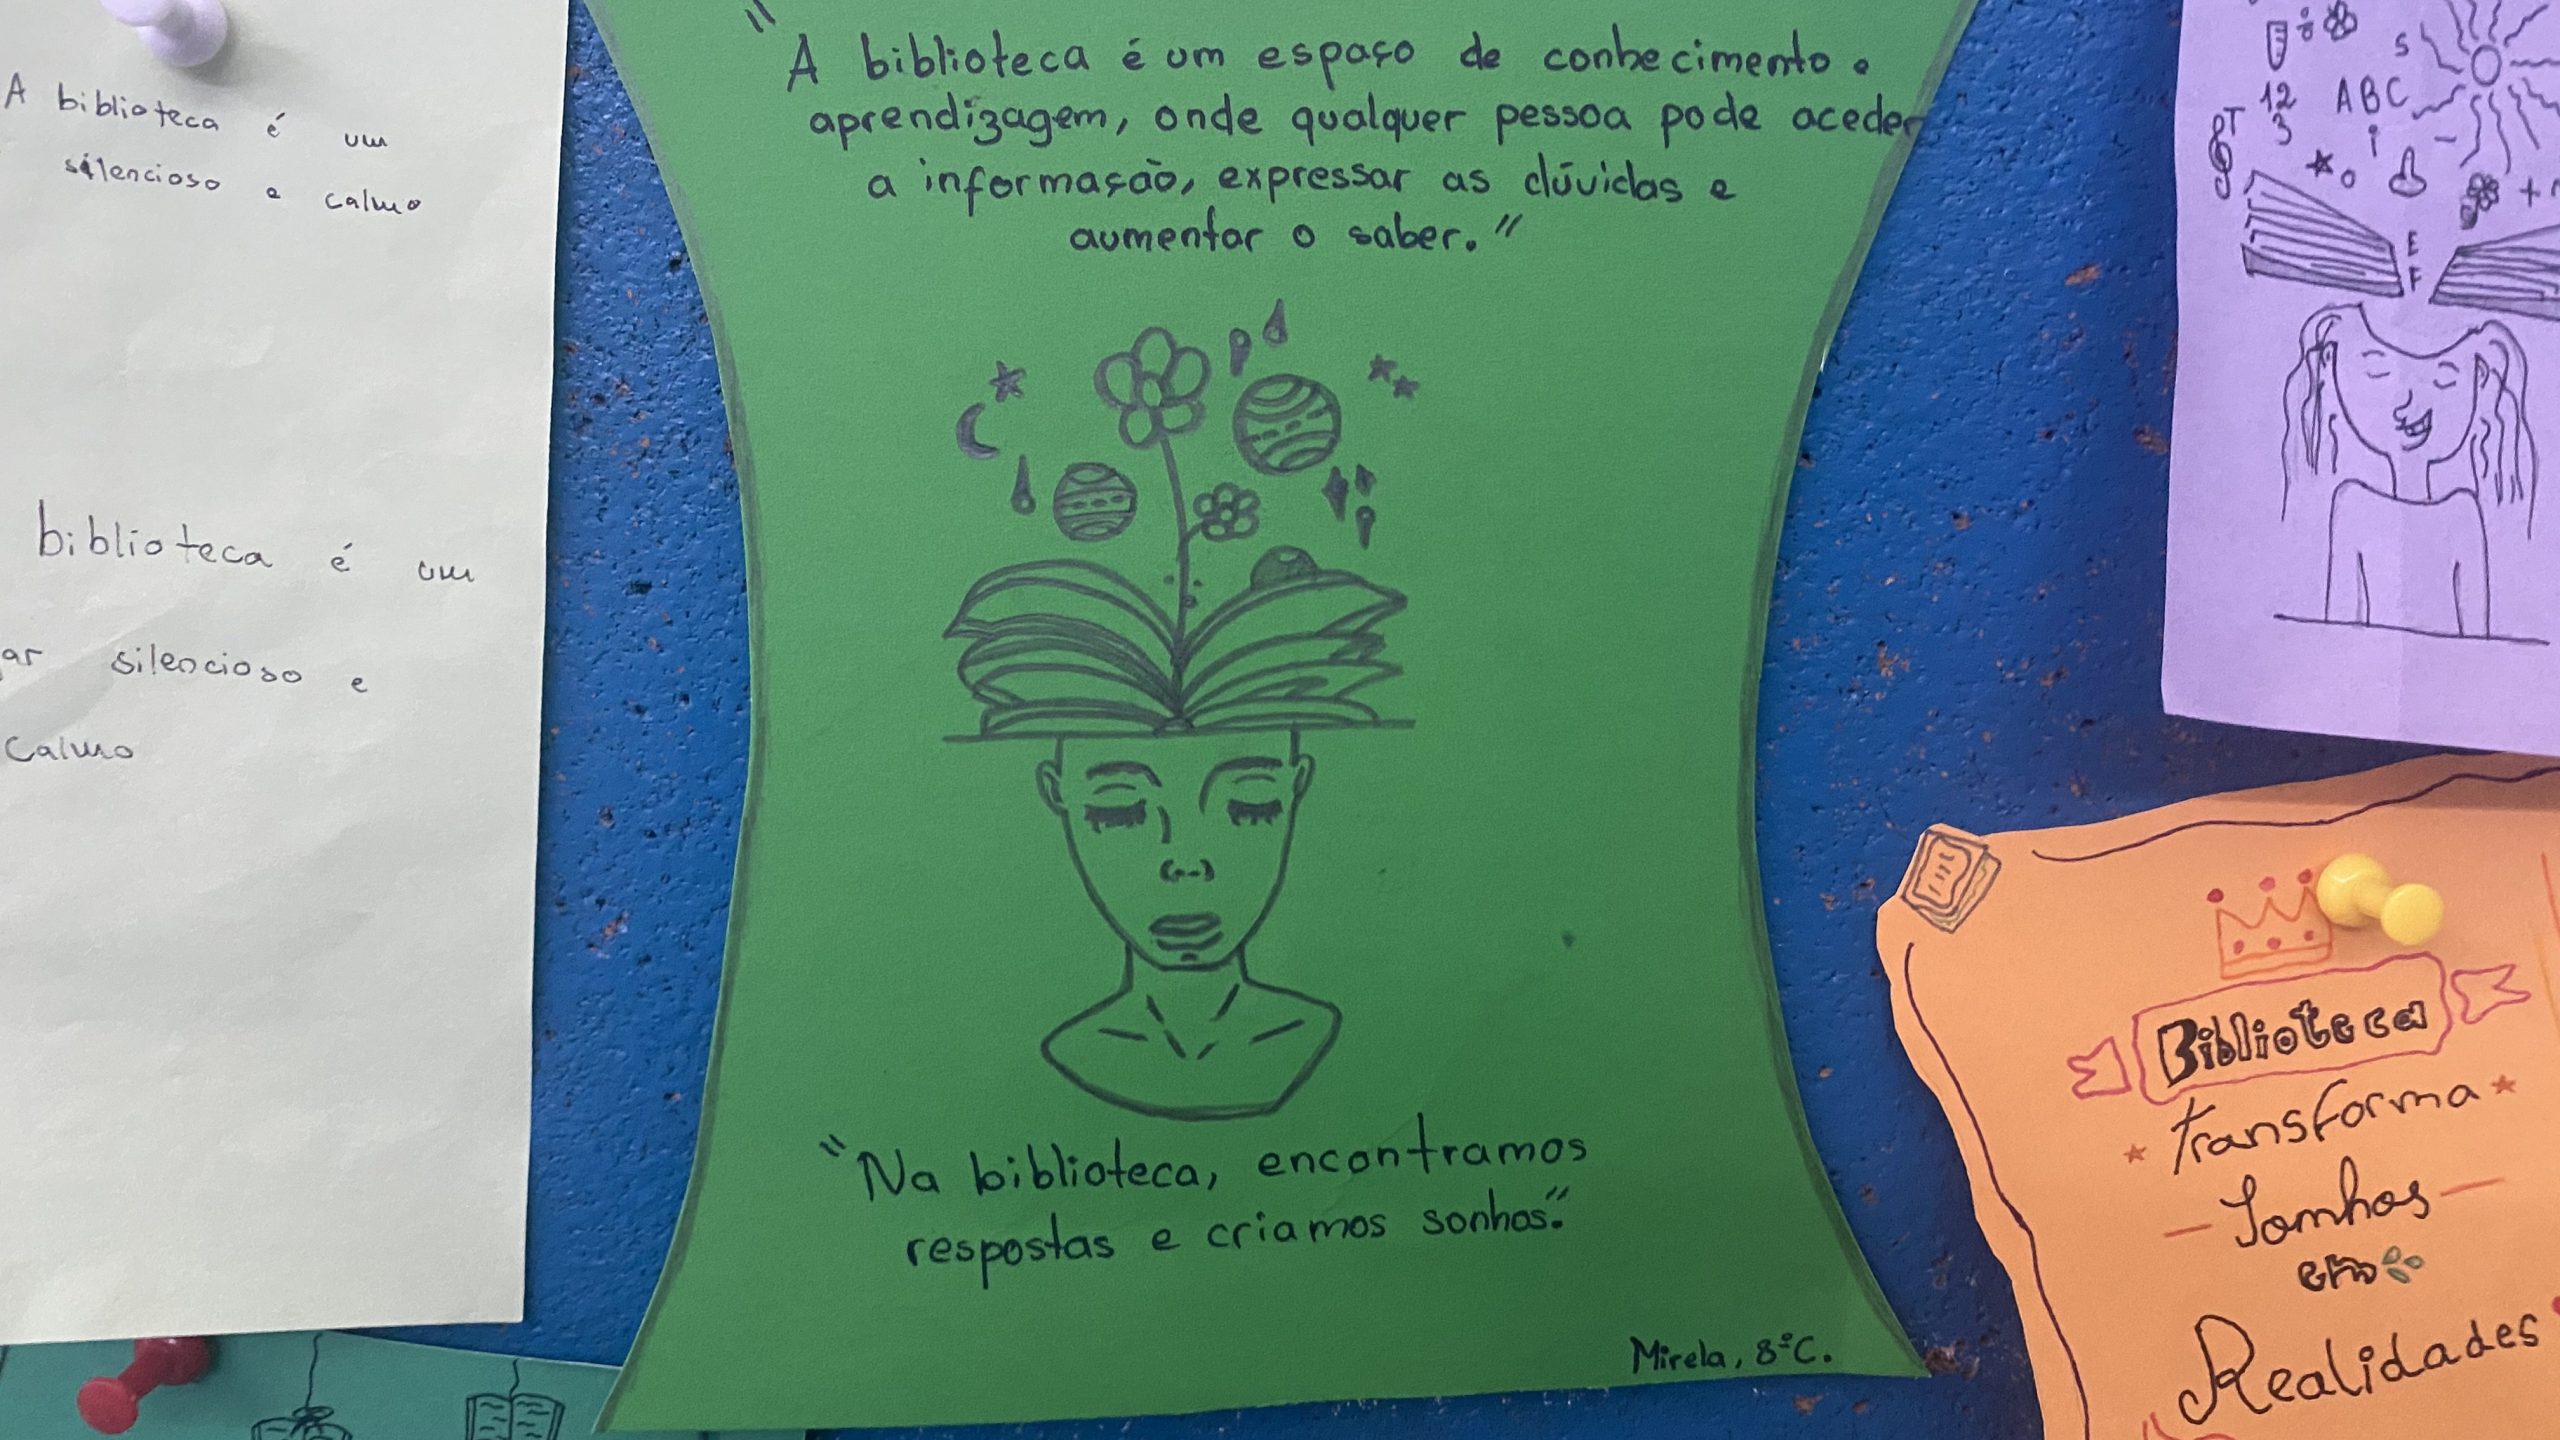 A biblioteca é um
silencioso e calmo
biblioteca é um
ar silencioso e
calmo
"A biblioteca é um espaço de conhecimento e
aprendizagem, onde qualquer pessoa pode aceder
a informação, expressar as dúvidas e
aumentar o saber."
"Na biblioteca, encontramos
respostas e criamos sonhos."
Mirela, 8ºC.
S
12 ABC
3
E
F
Biblioteca
Transforma
Sonhos
em
Realidades